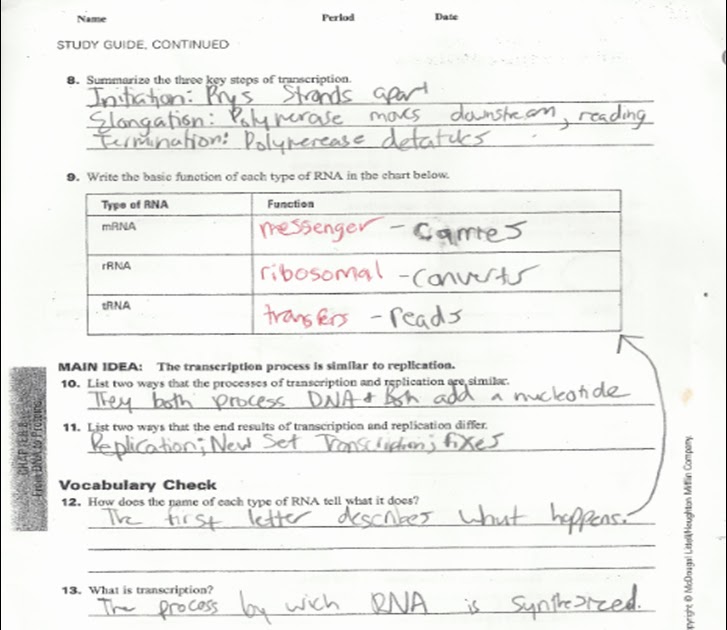 Name Period Date
STUDY GUIDE, CONTINUED
8. Summarize the three key steps of transcription.
Initiation: Prys Strands apart
Elongation: Polymerase movs downstream, reading
Termination: Polymerease detatches
9. Write the basic function of each type of RNA in the chart below.
Type of RNA Function
mRNA messenger - carries
rRNA ribosomal - converts
tRNA transfers - reads
MAIN IDEA: The transcription process is similar to replication.
10. List two ways that the processes of transcription and replication are similar.
They both process DNA + Both add a nucleotide
11. List two ways that the end results of transcription and replication differ.
Replication; New Set Transcription; fixes
Vocabulary Check
12. How does the name of each type of RNA tell what it does?
The first letter describes what happens.
13. What is transcription?
The process by wich RNA is synthesized.
CHAPTER 8
From DNA to Proteins
pyright © McDougal Littell/Houghton Mifflin Company